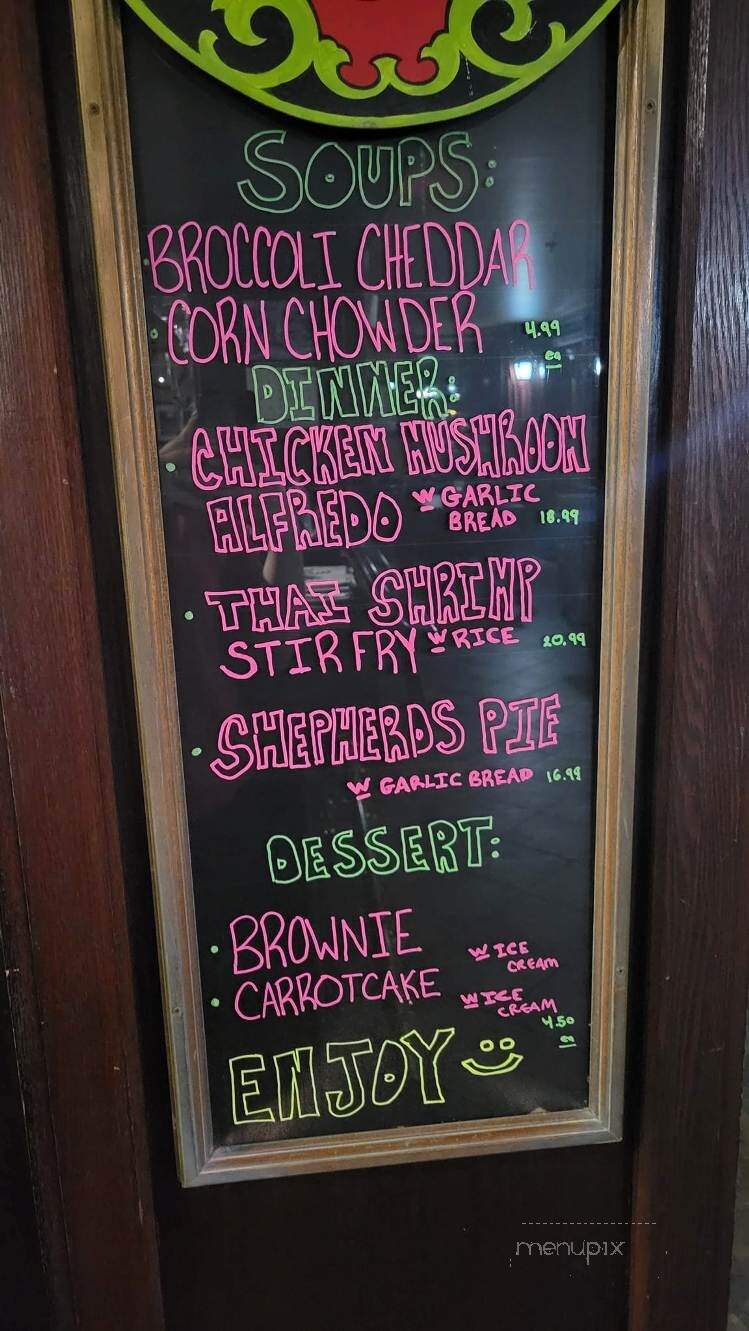 SOUPS:
BROCCOLI CHEDDAR
CORN CHOWDER 4.99
ea
DINNER:
CHICKEN MUSHROOM
ALFREDO W GARLIC
BREAD 18.99
THAI SHRIMP
STIR FRY W RICE 20.99
SHEPHERDS PIE
W GARLIC BREAD 16.99
DESSERT:
BROWNIE W ICE
CREAM
CARROTCAKE W ICE
CREAM
4.50
ea
ENJOY
menupix